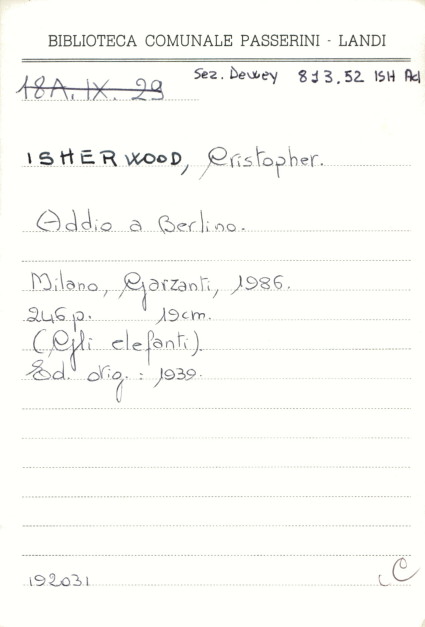 BIBLIOTECA COMUNALE PASSERINI - LANDI
18A. IX. 29 Sez. Dewey 813.52 ISH Ad
ISHERWOOD, Cristopher.
Addio a Berlino.
Milano, Garzanti, 1986.
246 p. 19 cm.
(Gli elefanti).
Ed. orig. : 1939.
192031 C